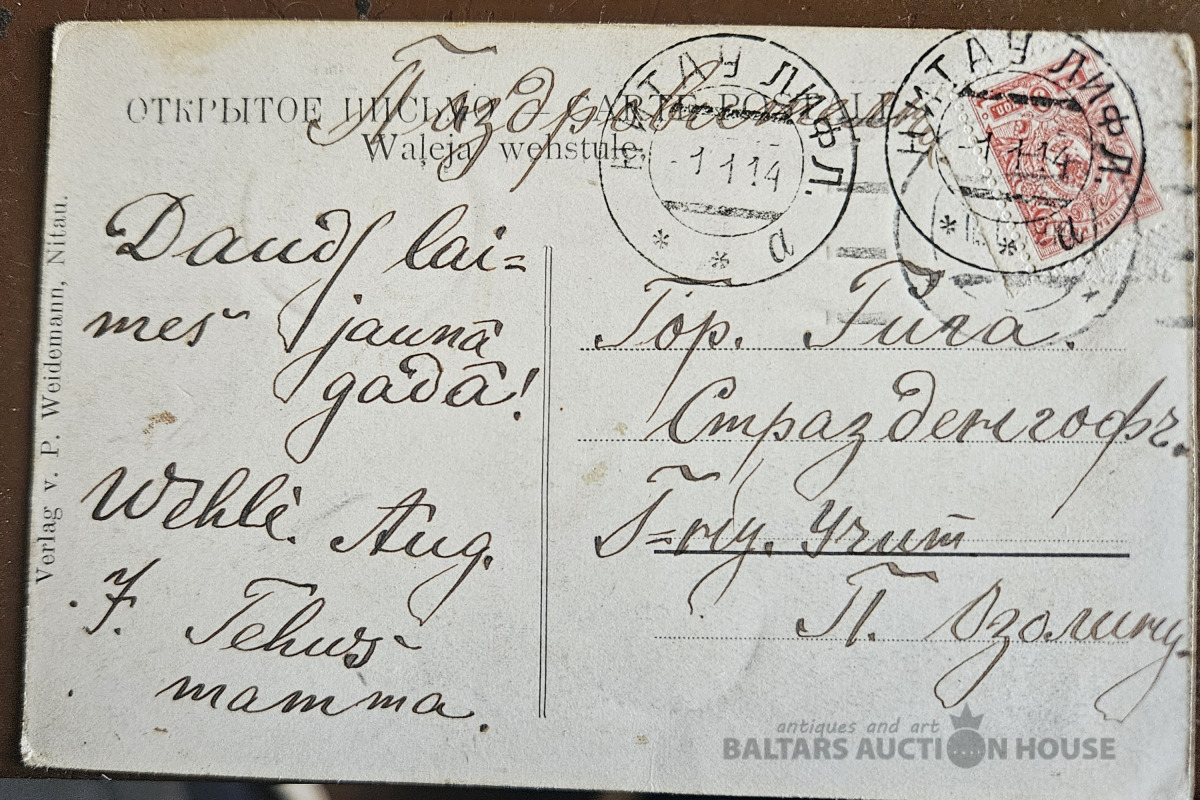 Поздравительн.
ОТКРЫТОЕ ПИСЬМО — CARTE POSTALE
Waļeja wehstule.
НИТАУ ЛИФЛ.
-1 1 14
а
НИТАУ ЛИФЛ.
-1 1 14
а
Verlag v. P. Weidemann, Nitau.
Daudſ lai=
mes jaunā
gadā!
Wehlē. Aug.
J. Tehws
mamma.
Гор. Рига.
Штразденгофч.
Г-ну. Учит
П. Озолину.
antiques and art
BALTARS AUCTION HOUSE